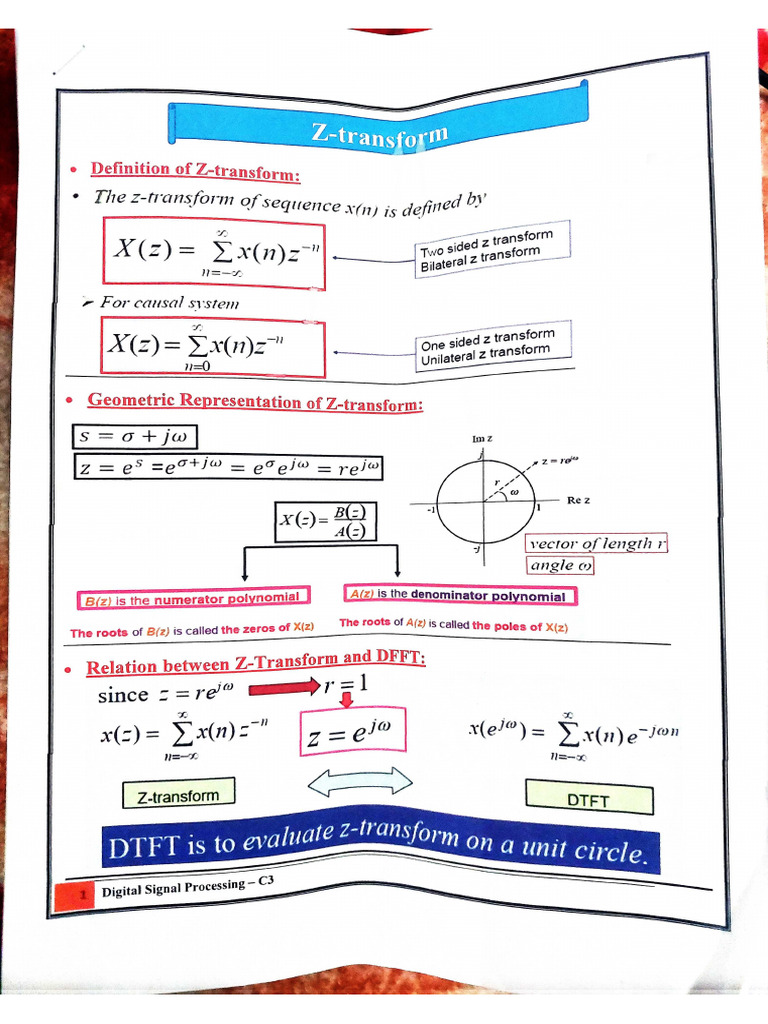 Z-transform
• Definition of Z-transform:
• The z-transform of sequence x(n) is defined by
X(z) = ∑_{n=-∞}^{∞} x(n)z^{-n}
Two sided z transform
Bilateral z transform
➢ For causal system
X(z) = ∑_{n=0}^{∞} x(n)z^{-n}
One sided z transform
Unilateral z transform
• Geometric Representation of Z-transform:
s = σ + jω
z = e^s =e^{σ+jω} = e^σ e^{jω} = re^{jω}
Im z
j
z = re^{jω}
r
ω
-1
1
Re z
-j
vector of length r
angle ω
X(z) = B(z)/A(z)
B(z) is the numerator polynomial
A(z) is the denominator polynomial
The roots of B(z) is called the zeros of X(z)
The roots of A(z) is called the poles of X(z)
• Relation between Z-Transform and DFFT:
since z = re^{jω} r = 1
x(z) = ∑_{n=-∞}^{∞} x(n) z^{-n}
z = e^{jω}
x(e^{jω}) = ∑_{n=-∞}^{∞} x(n) e^{-jωn}
Z-transform
DTFT
DTFT is to evaluate z-transform on a unit circle.
1 Digital Signal Processing – C3